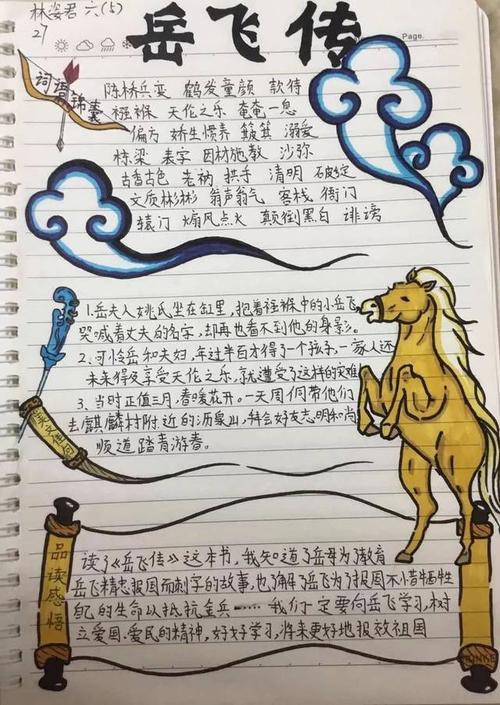 林姿君 六(5)
27
岳飞传
Page.
词语锦囊
陈桥兵变 鹤发童颜 款待
襁褓 天伦之乐 奄奄一息
偏方 娇生惯养 簸箕 溺爱
栋梁 表字 因材施教 沙弥
古香古色 老衲 拱手 清明
文质彬彬 翁声翁气 客栈 衙门
辕门 煽风点火 颠倒黑白 诽谤
1.岳夫人姚氏坐在缸里,抱着襁褓中的小岳飞
哭喊着丈夫的名字,却再也看不到他的身影。
2.可怜岳和夫妇,年过半百才得了个孩子,一家人还
未来得及享受天伦之乐,就遭受了这样的灾难
3、当时正值三月,春暖花开。一天周侗带他们
去麒麟村附近的沥泉山,拜会好友志明和尚
顺道踏青游春。
品读感悟
读了《岳飞传》这本书,我知道了岳母为了教育
岳飞精忠报国而刺字的故事,也了解了岳飞为了报国不惜牺牲
自己的生命以抵抗金兵……我们一定要向岳飞学习,树
立爱国、爱民的精神,好好学习,将来更好地报效祖国